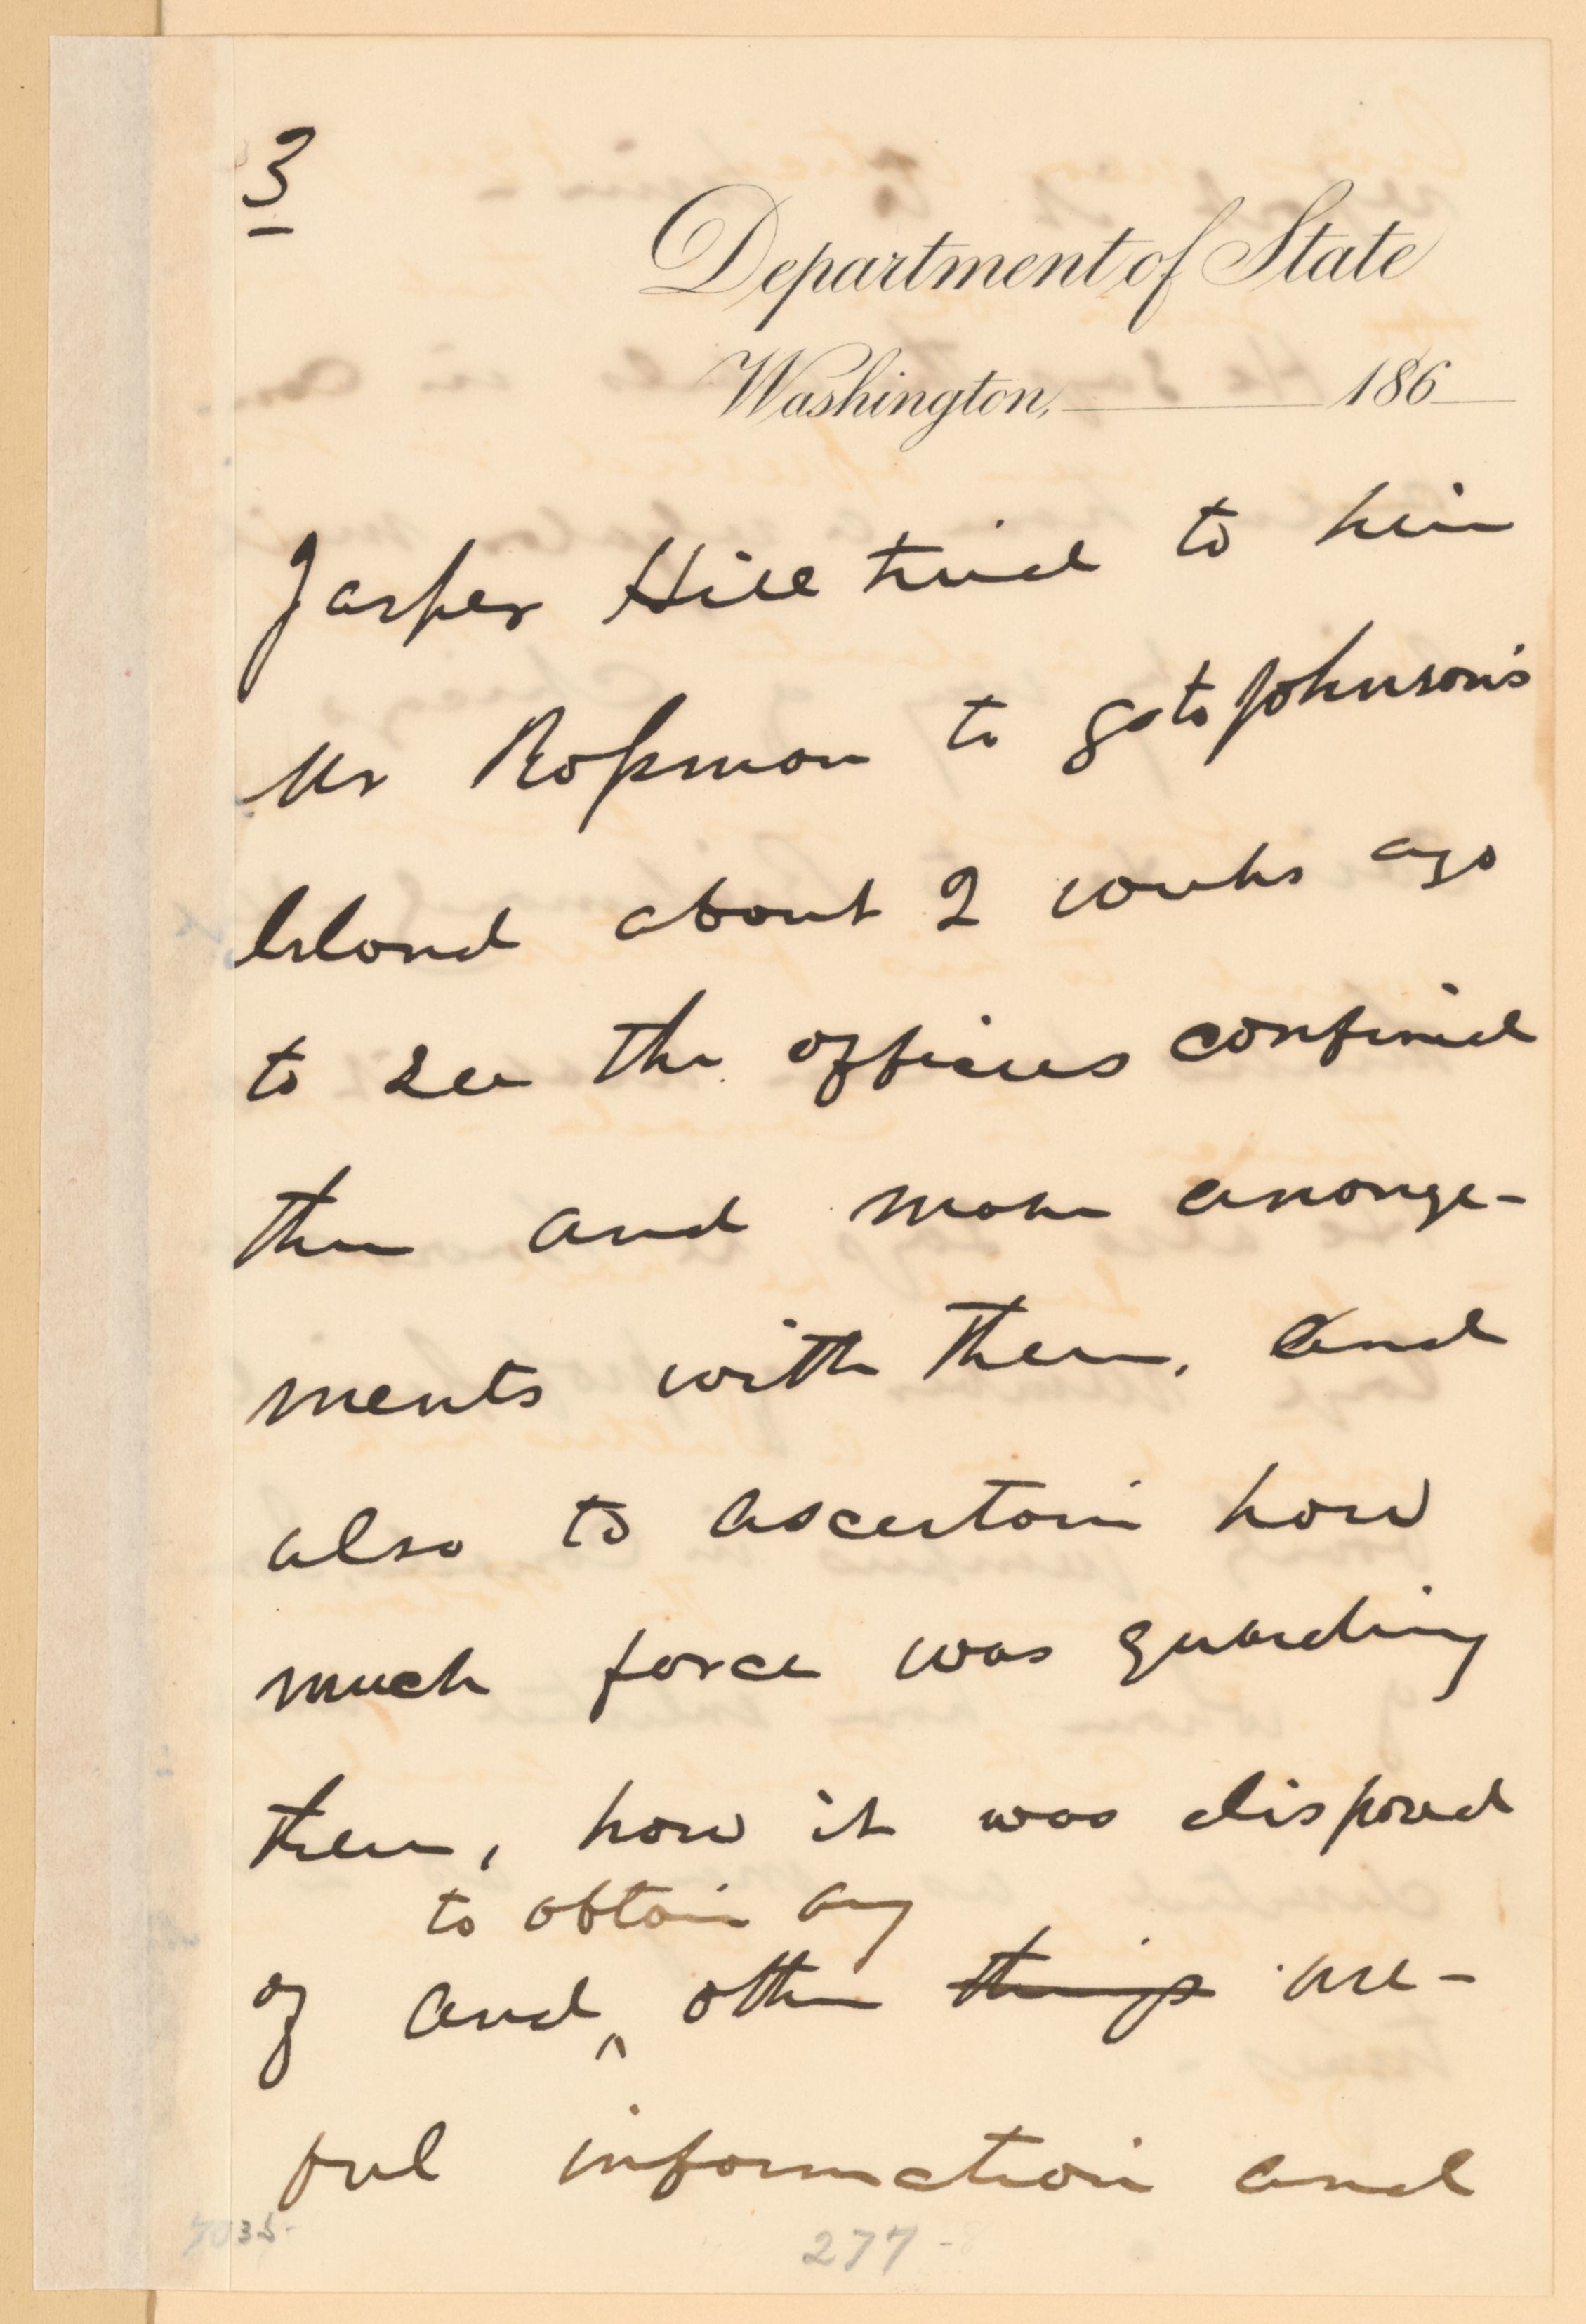 3
Department of State
Washington, 186
Jasper Hill tried to hire
Mr Rossman to go to Johnson's
Island about 2 weeks ago
to see the officers confined
there and make arrange-
ments with them. and
also to ascertain how
much force was guarding
them, how it was disposed
to obtain any
of and ^ other things use-
ful information and
277